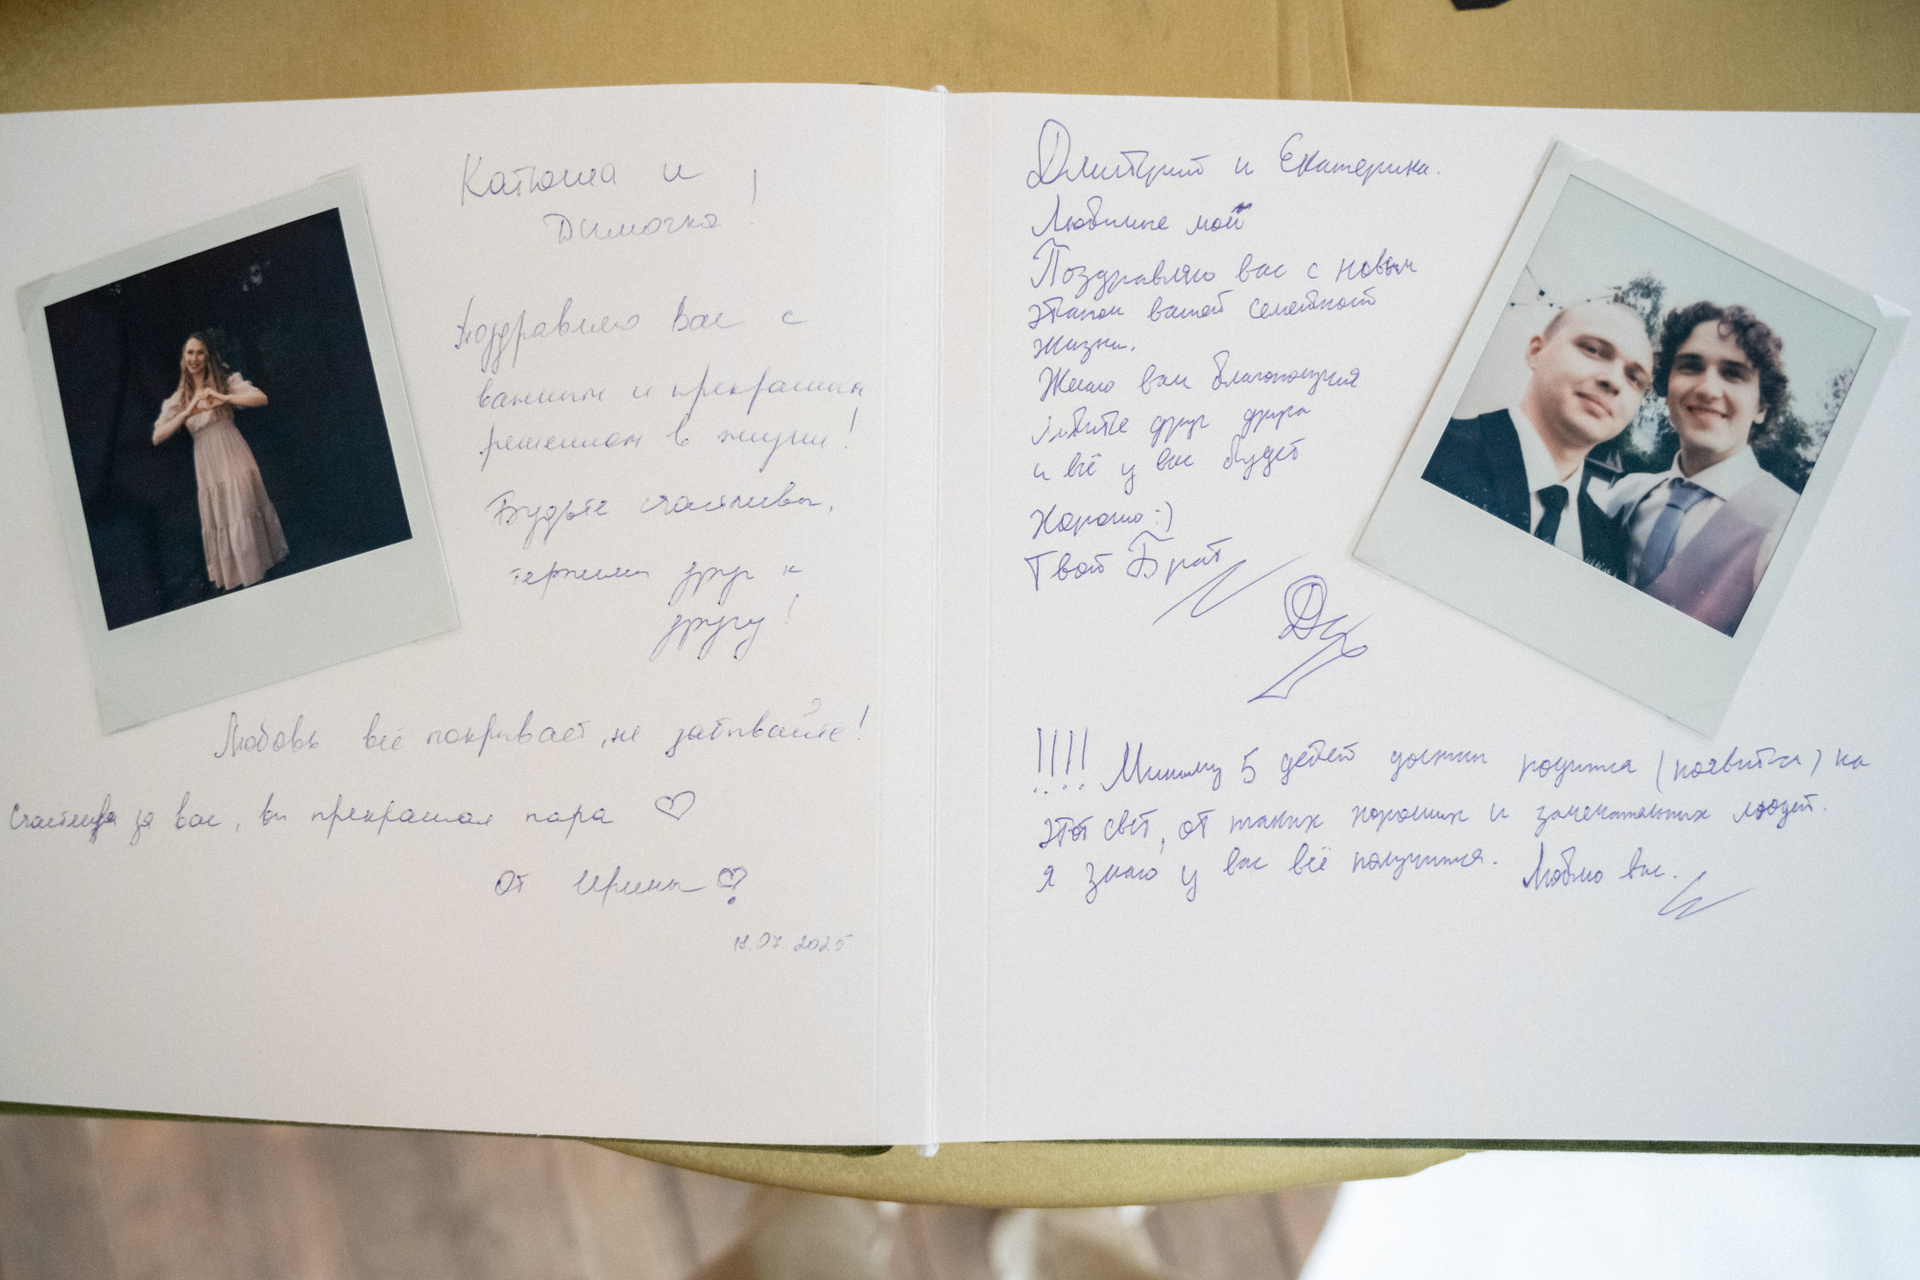 Катюша и
Димочка!
Поздравляю Вас с
важным и прекрасным
решением в жизни!
Будьте счастливы,
терпимы друг к
другу!
Любовь всё покрывает, не забывайте!
Счастлива за вас, вы прекрасная пара ♡
От Ирины
18.07.2025
Дмитрий и Екатерина.
Любимые мой
Поздравляю вас с новым
этапом вашей семейной
жизни.
Желаю вам благополучия
любите друг друга
и всё у вас будет
Хорошо :)
Твой Брат
!!!! Минимум 5 детей должны родится (появится) на
этот свет, от таких хороших и замечательных людей.
я знаю у вас всё получится. Люблю вас.